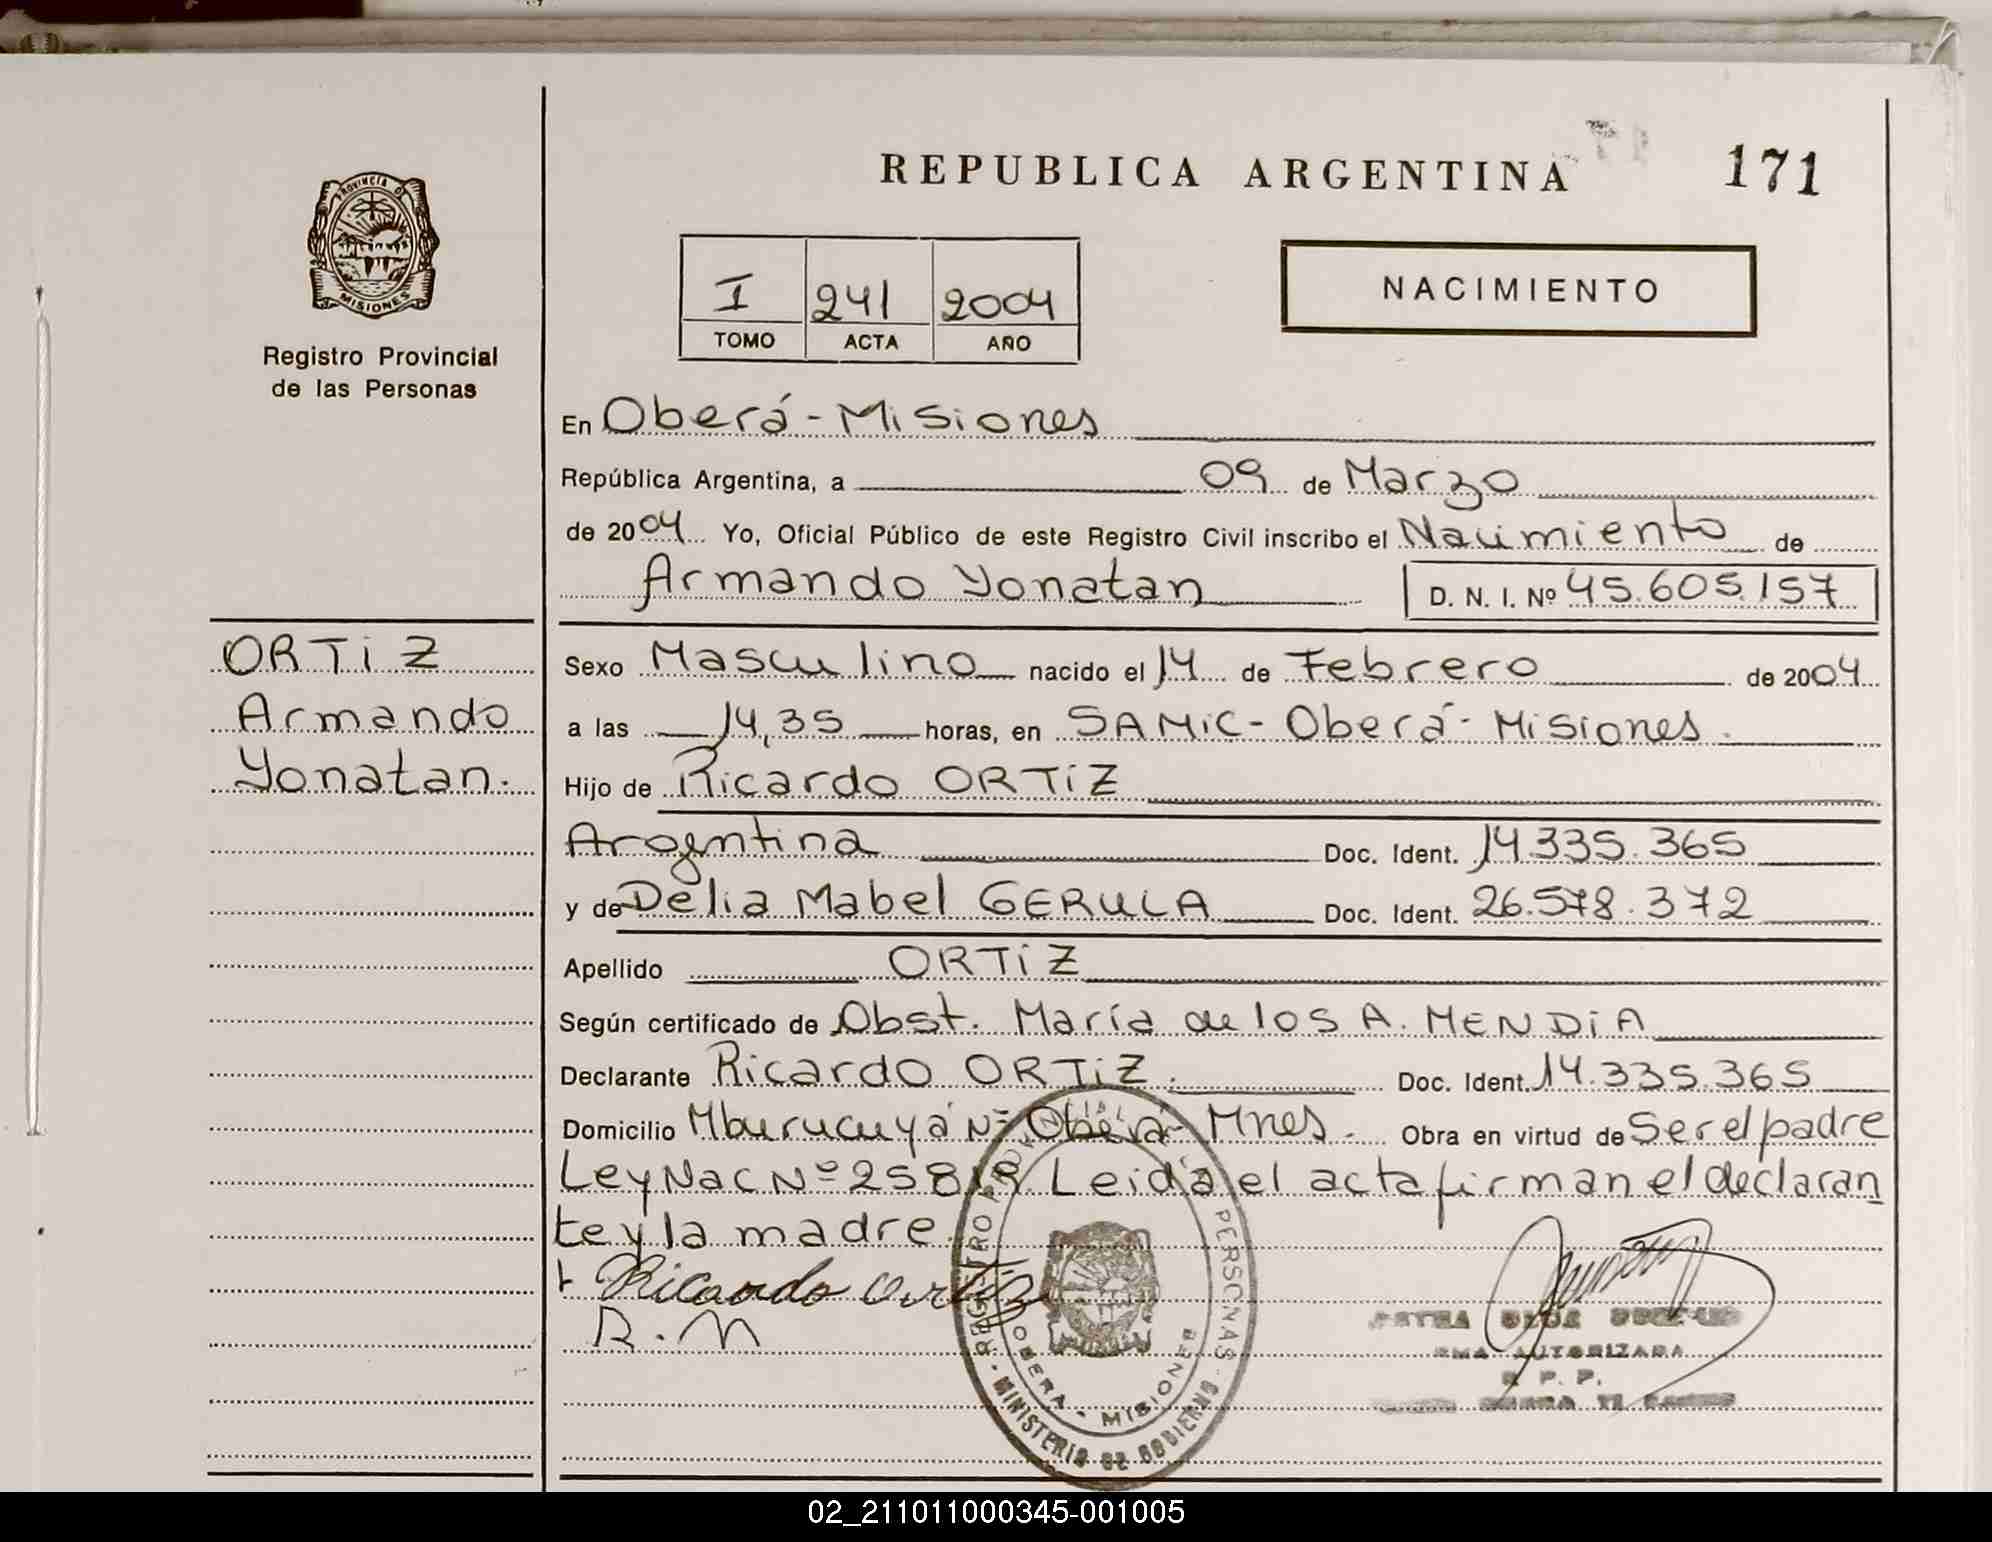 REPUBLICA ARGENTINA
171
PROVINCIA D
MISIONES
Registro Provincial
de las Personas
I 241 2004
TOMO ACTA AÑO
NACIMIENTO
En Oberá - Misiones
República Argentina, a 09 de Marzo
de 2004 Yo, Oficial Público de este Registro Civil inscribo el Nacimiento de
Armando Yonatan D. N. I. Nº 45.605.157
ORTiZ
Armando
Yonatan.
Sexo Masculino nacido el 14 de Febrero de 2004
a las 14,35 horas, en SAMiC - Oberá - Misiones.
Hijo de Ricardo ORTiZ
Argentina Doc. Ident. 14.335.365
y de Delia Mabel GERULA Doc. Ident. 26.578.372
Apellido ORTiZ
Según certificado de Obst. María de los A. MENDiA
Declarante Ricardo ORTiZ. Doc. Ident. 14.335.365
Domicilio Mburucuyá Nº Oberá - Mnes. Obra en virtud de Ser el padre
Ley Nac Nº 25818 Leida el acta firman el declaran
te y la madre.
Ricardo Ortiz
R. M
REGISTRO PERSONAS
OBERA - MISIONES
MINISTERIO DE GOBIERNO
AUTORIZADA
P. P.
02_211011000345-001005